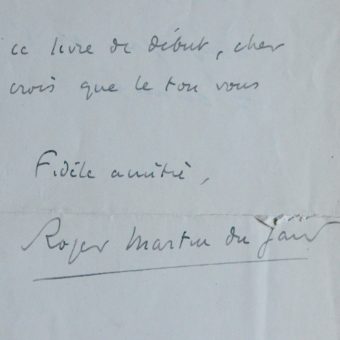 ce livre de début, cher
crois que le ton vous
Fidèle amitié,
Roger Martin du Gard